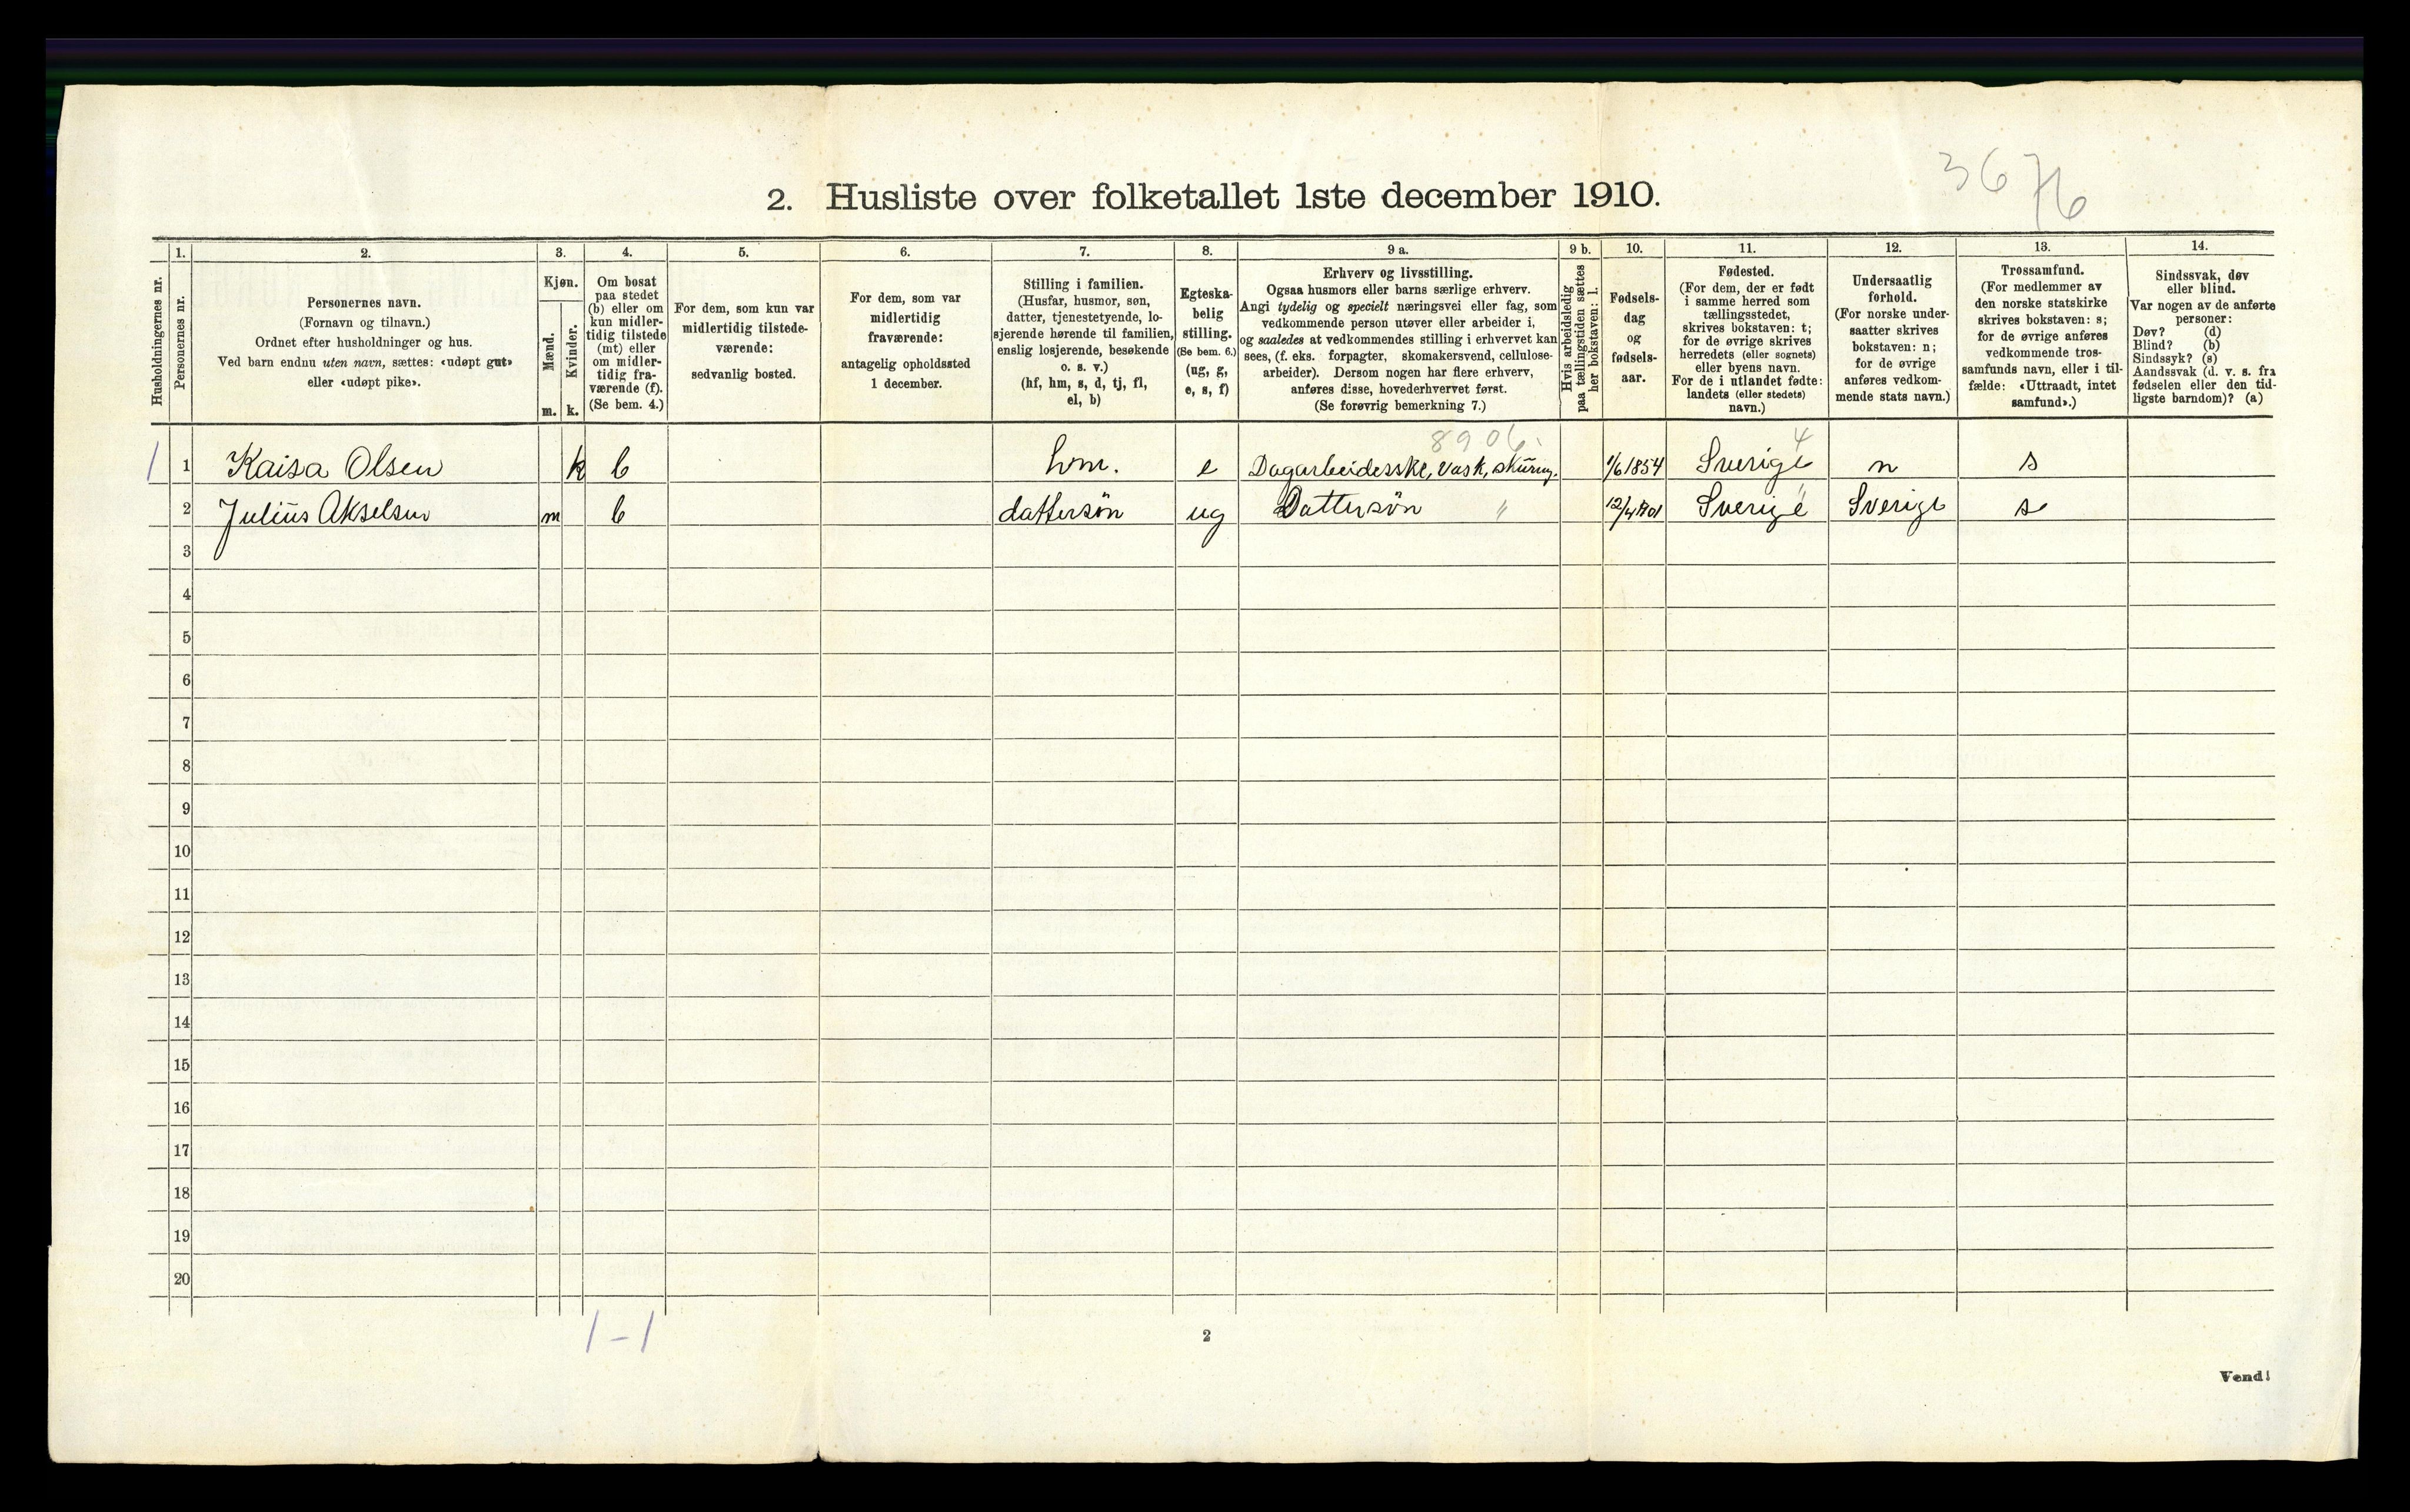 3676
2. Husliste over folketallet 1ste december 1910.
Husholdningernes nr.
1.
Personernes nr.
2.
Personernes navn.
(Fornavn og tilnavn.)
Ordnet efter husholdninger og hus.
Ved barn endnu uten navn, sættes: «udøpt gut»
eller «udøpt pike».
3.
Kjøn.
Mænd.
m.
Kvinder.
k.
4.
Om bosat
paa stedet
(b) eller om
kun midler-
tidig tilstede
(mt) eller
om midler-
tidig fra-
værende (f).
(Se bem. 4.)
5.
For dem, som kun var
midlertidig tilstede-
værende:
sedvanlig bosted.
6.
For dem, som var
midlertidig
fraværende:
antagelig opholdssted
1 december.
7.
Stilling i familien.
(Husfar, husmor, søn,
datter, tjenestetyende, lo-
sjerende hørende til familien,
enslig losjerende, besøkende
o. s. v.)
(hf, hm, s, d, tj, fl,
el, b)
8.
Egteska-
belig
stilling.
(Se bem. 6.)
(ug, g,
e, s, f)
9 a.
Erhverv og livsstilling.
Ogsaa husmors eller barns særlige erhverv.
Angi tydelig og specielt næringsvei eller fag, som
vedkommende person utøver eller arbeider i,
og saaledes at vedkommendes stilling i erhvervet kan
sees, (f. eks. forpagter, skomakersvend, cellulose-
arbeider). Dersom nogen har flere erhverv,
anføres disse, hovederhvervet først.
(Se forøvrig bemerkning 7.)
9 b.
Hvis arbeidsledig
paa tællingstiden sættes
her bokstaven: l.
10.
Fødsels-
dag
og
fødsels-
aar.
11.
Fødested.
(For dem, der er født
i samme herred som
tællingsstedet,
skrives bokstaven: t;
for de øvrige skrives
herredets (eller sognets)
eller byens navn.
For de i utlandet fødte:
landets (eller stedets)
navn.)
12.
Undersaatlig
forhold.
(For norske under-
saatter skrives
bokstaven: n;
for de øvrige
anføres vedkom-
mende stats navn.)
13.
Trossamfund.
(For medlemmer av
den norske statskirke
skrives bokstaven: s;
for de øvrige anføres
vedkommende tros-
samfunds navn, eller i til-
fælde: «Uttraadt, intet
samfund».)
14.
Sindssvak, døv
eller blind.
Var nogen av de anførte
personer:
Døv? (d)
Blind? (b)
Sindssyk? (s)
Aandssvak (d. v. s. fra
fødselen eller den tid-
ligste barndom)? (a)
8906. 4
1 1 Kaisa Olsen k b hm. e Dagarbeiderske, vask, skuring. 1/6 1854 Sverige n s
2 Julius Akselsen m b dattersøn ug Dattersøn " 12/4 1901 Sverige Sverige s
3
4
5
6
7
8
9
10
11
12
13
14
15
16
17
18
19
20
1-1
2
Vend!